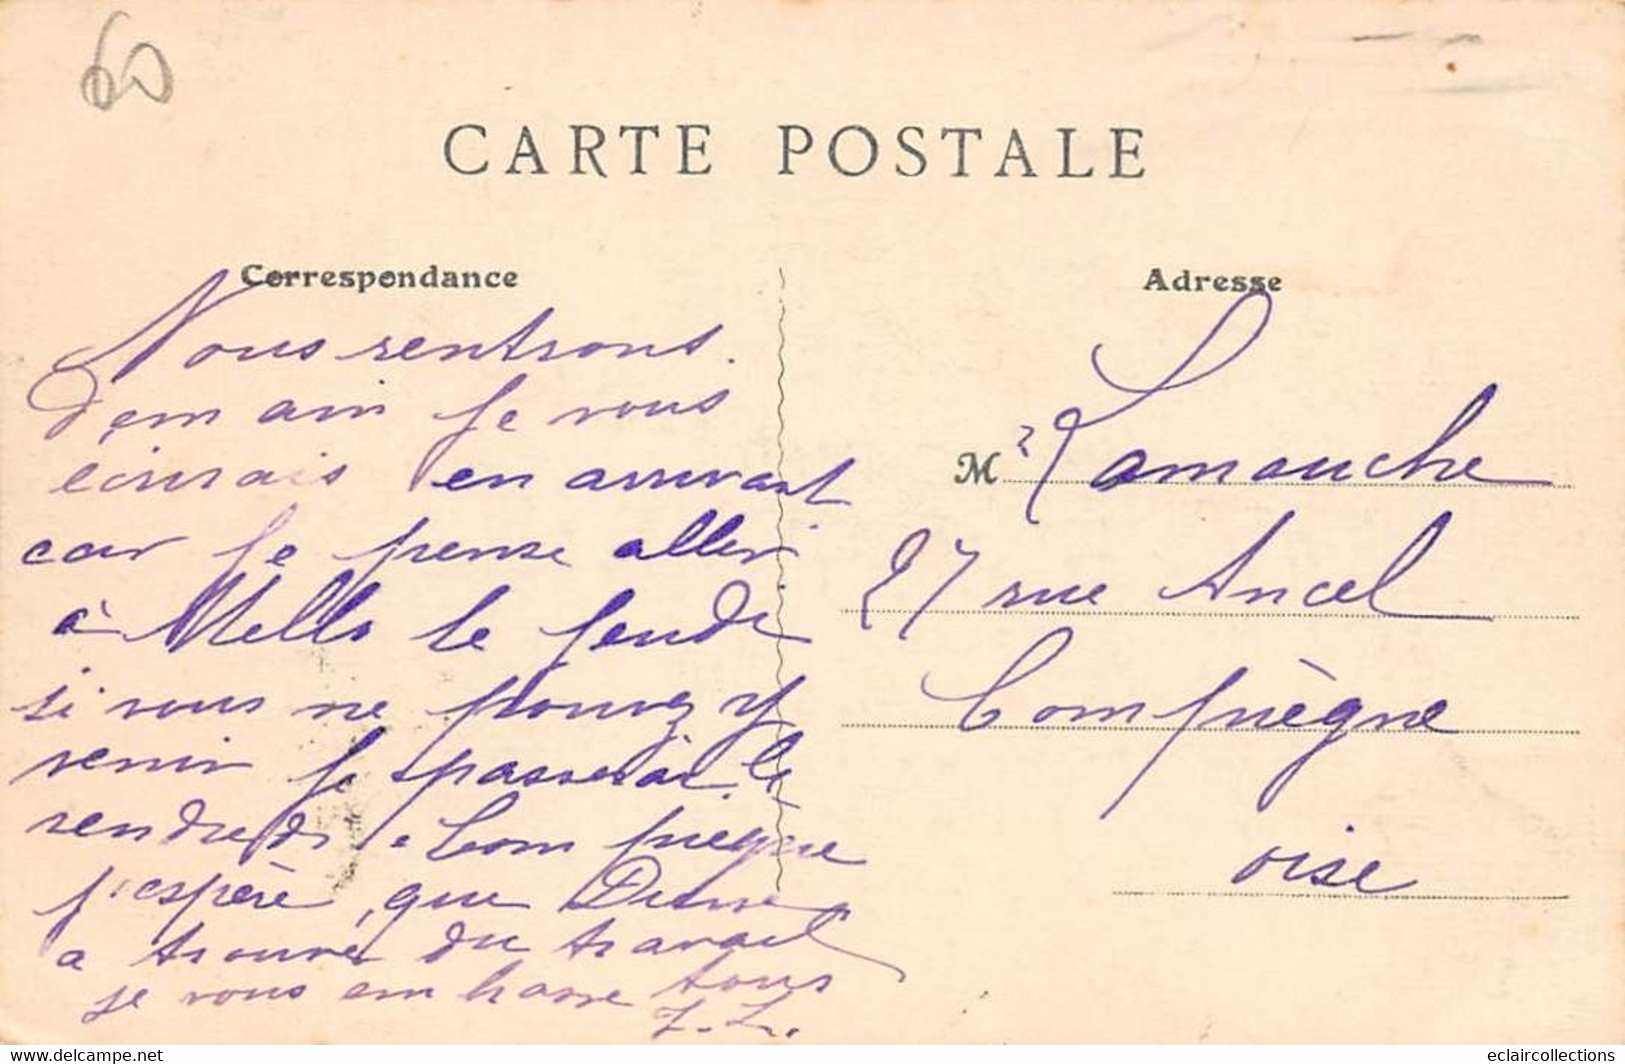 60
CARTE POSTALE
Correspondance
Nous rentrons.
demain je vous
écirais en arrivant
car je pense aller
à Mello le jeudi
si vous ne pouvez y
venir je passerai le
vendredi a Compiegne
j'espère que
a trouver du travail
je vous embrasse tous
Adresse
Mr Lamouche
27 rue Ancel
Compiègne
oise
eclaircollections